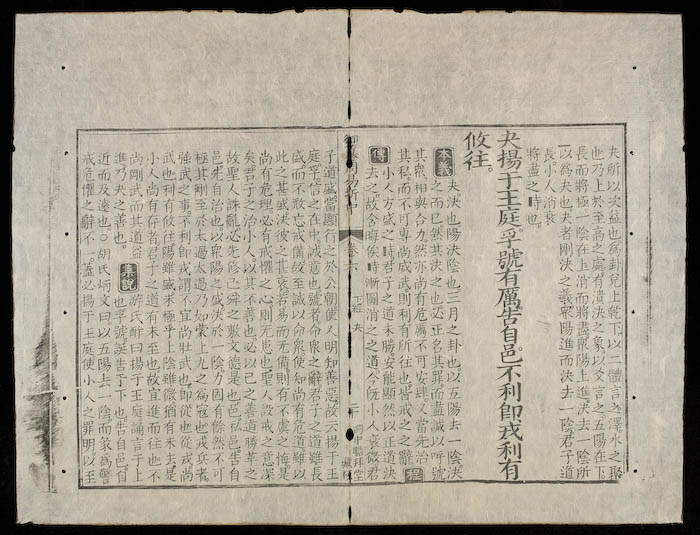 夬所以次益也爲卦兌上乾下以二體言之澤水之聚
也乃上於至高之處有潰決之象以爻言之五陽在下
長而將極一陰在上消而將盡衆陽上進決去一陰所
以爲夬也夬者剛決之義衆陽進而決去一陰君子道
長小人消衰
將盡之時也
夬揚于王庭孚號有厲告自邑不利卽戎利有
攸往
本義
夬決也陽決陰也三月之卦也以五陽去一陰決
之而已然其決之也必正名其罪而盡誠以呼號
其衆相與合力然亦尚有危厲不可安肆又當先治
其私而不可專尚威武則利有所往也皆戒之之辭
程
傳
小人方盛之時君子之道未勝安能顯然以正道決
去之故含晦俟時漸圖消之之道今既小人衰微君
卷六
下經 夬
子道盛當顯行之於公朝使人明知善惡故云揚于王
庭孚信之在中誠意也號者命衆之辭君子之道雖長
盛而不敢忘戒備故至誠以命衆使知尚有危道雖以
此之甚盛決彼之甚衰若易而无備則有不虞之悔是
尚有危理必有戒懼之心則无患也聖人設戒之意深
矣君子之治小人以其不善也必以己之善道勝革之
故聖人誅亂必先修己舜之敷文德是也邑私邑告自
邑先自治也以衆陽之盛決於一陰力固有餘然不可
極其剛至於太過太過乃如蒙上九之爲寇也戎兵者
強武之事不利卽戎謂不宜尚壯武也卽從也從戎尚
武也利有攸往陽雖盛未極乎上陰雖微猶有未去是
小人尚有存者君子之道有未至也故宜進而往也不
尚剛武而其道益
進乃夬之善也
集說
游氏酢曰揚于王庭誦言于上
也孚號誕告于下也告自邑自
近而及遠也○胡氏炳文曰以五陽去一陰而彖爲警
戒危懼之辭不一蓋必揚于王庭使小人之罪明以至